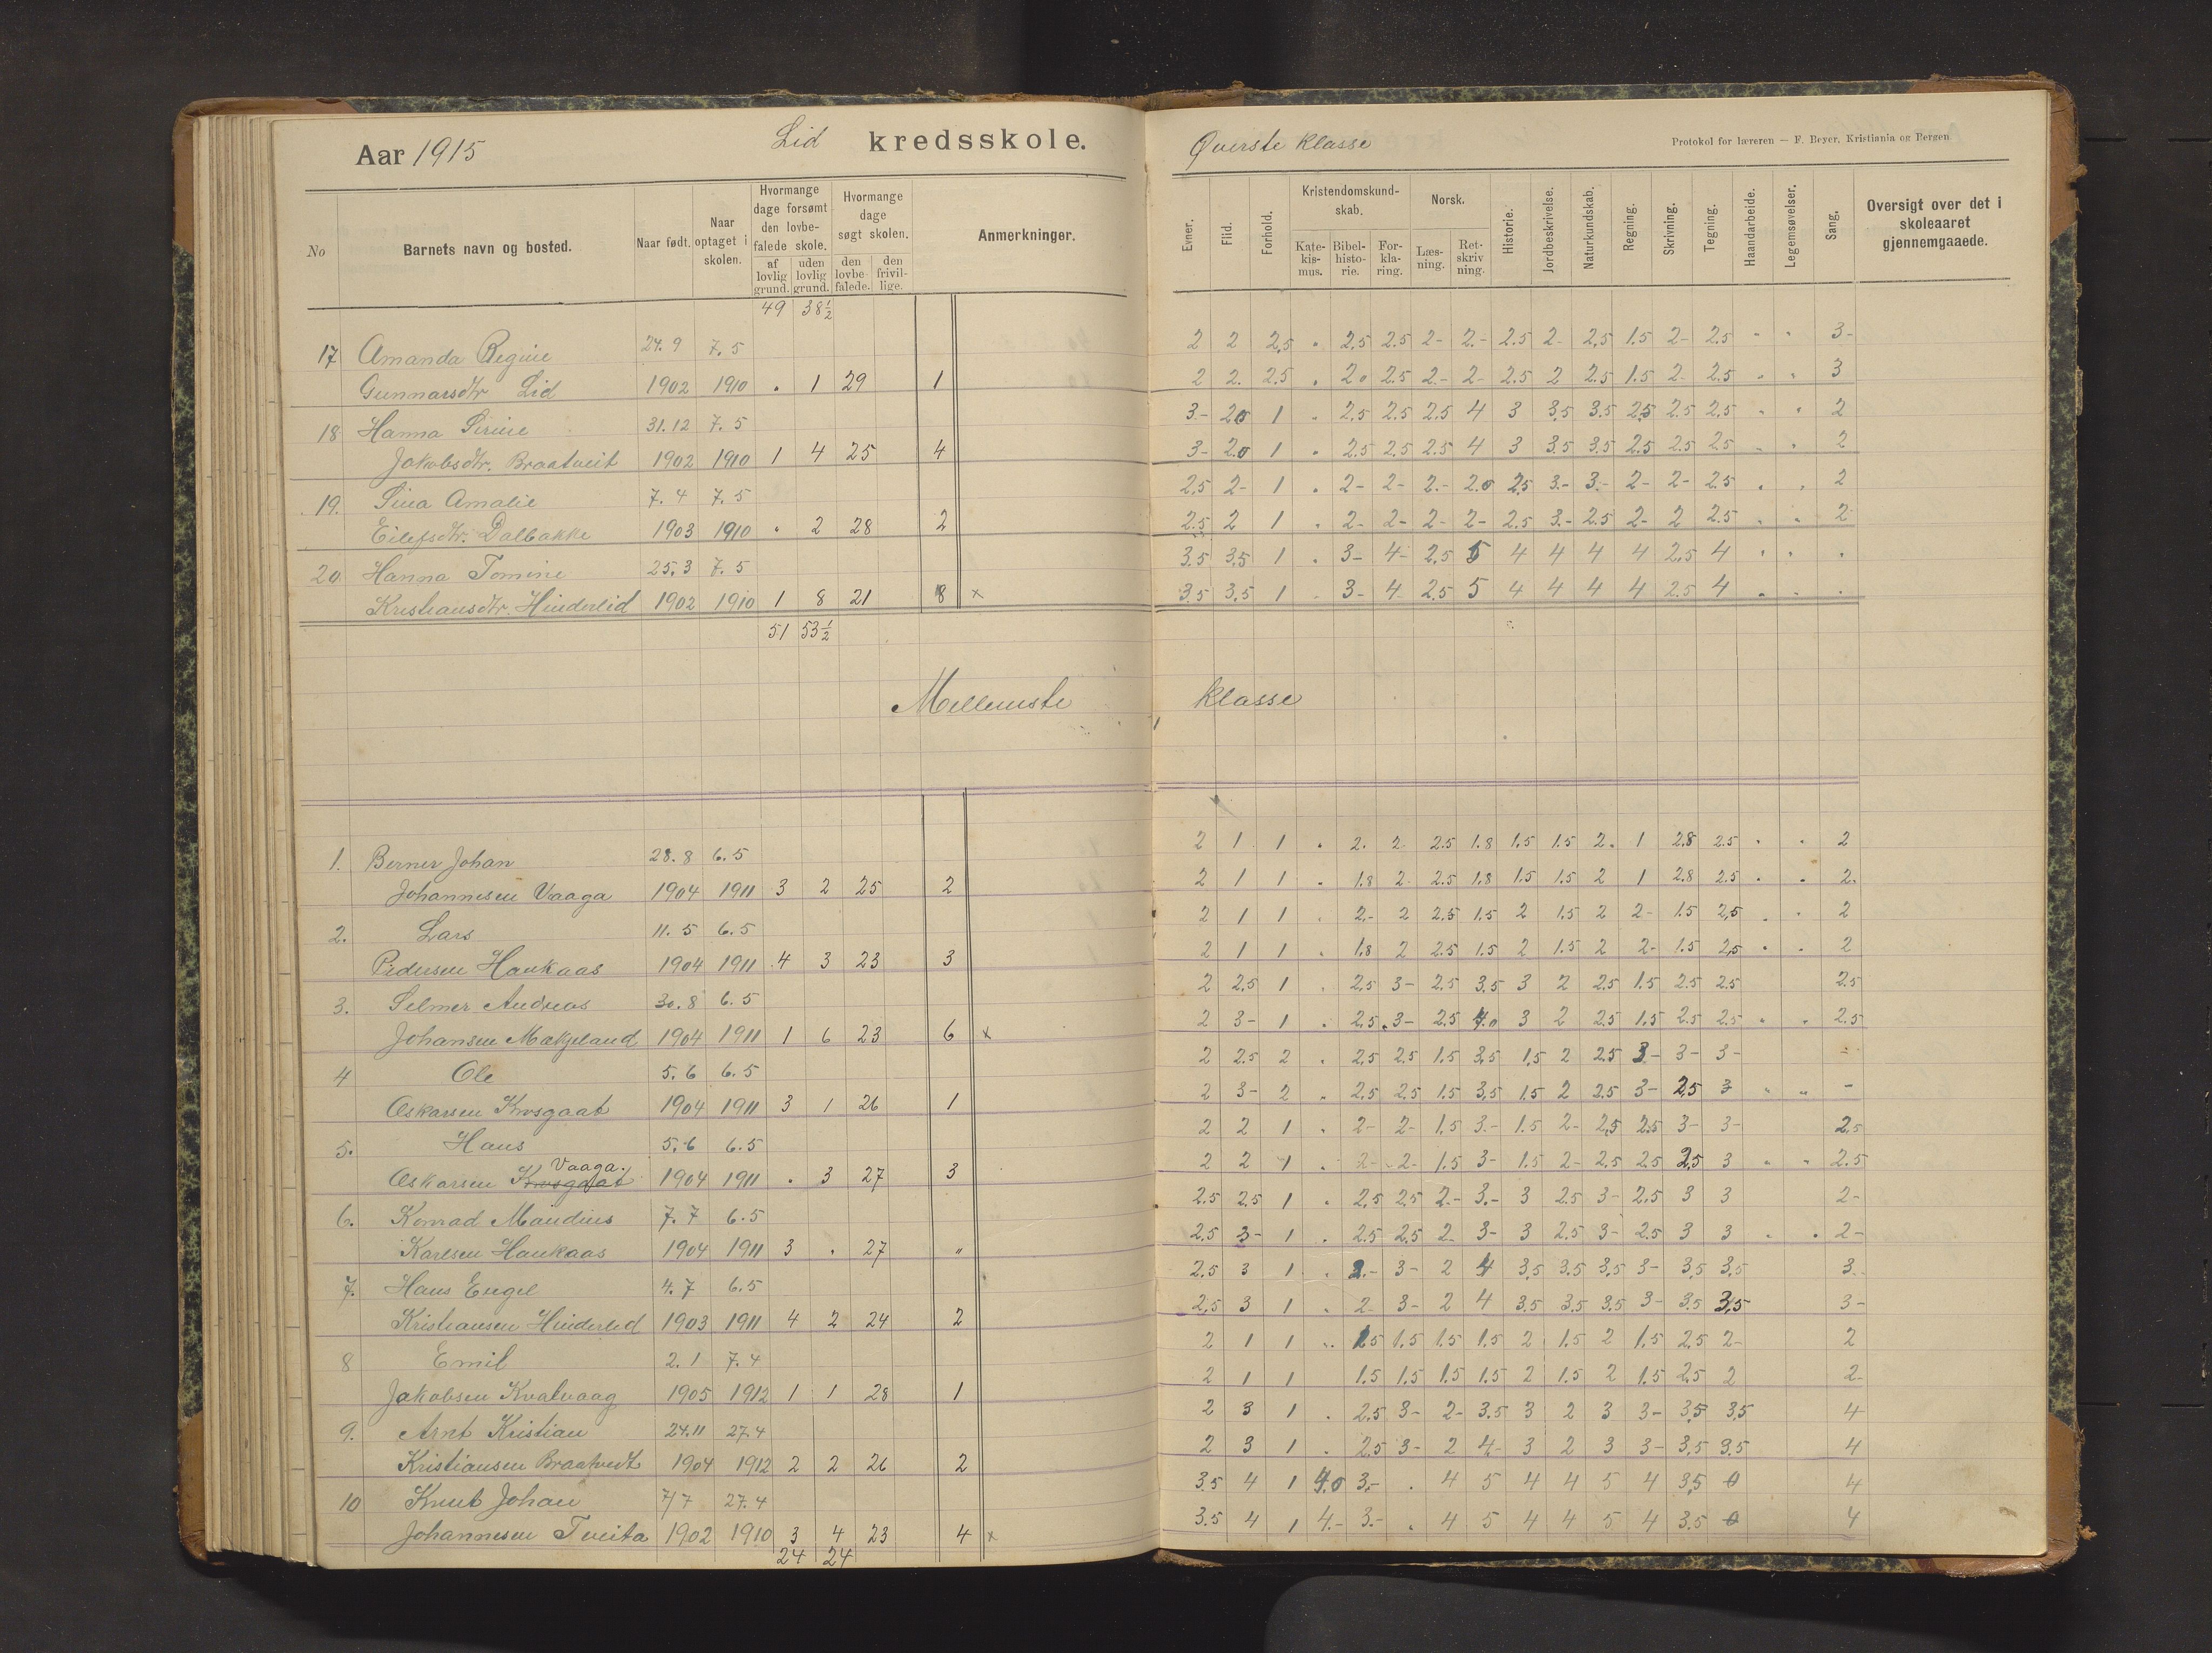 Aar 1915 Lid kredsskole. Øverste klasse Protokol for læreren — F. Beyer, Kristiania og Bergen
No Barnets navn og bosted. Naar født. Naar optaget i skolen. Hvormange dage forsømt den lovbefalede skole. af lovlig grund. uden lovlig grund. Hvormange dage søgt skolen. den lovbefalede. den frivillige. Anmerkninger.
Evner. Flid. Forhold. Kristendomskundskab. Katekismus. Bibelhistorie. Forklaring. Norsk. Læsning. Retskrivning. Historie. Jordbeskrivelse. Naturkundskab. Regning. Skrivning. Tegning. Haandarbeide. Legemsøvelser. Sang. Oversigt over det i skoleaaret gjennemgaaede.
49 38½
17 Amanda Regine 24.9 7.5 2 2 2,5 " 2,5 2.5 2- 2.- 2.5 2- 2,5 1.5 2- 2.5 " " 3-
Gunnarsdtr Lid 1902 1910 " 1 29 1 2 2. 2.5 " 2.0 2.5 2.- 2- 2.5 2 2.5 1.5 2- 2.5 " " 3
18 Hanna Serine 31.12 7.5 3- 2.0 1 " 2.5 2.5 2.5 4 3 3,5 3.5 2,5 2.5 2,5 " " 2
Jakobsdtr. Braatveit 1902 1910 1 4 25 4 3- 2.0 1 " 2.5 2.5 2.5 4 3 3.5 3.5 2.5 2.5 2.5 " " 2
19. Sina Amalie 7.4 7.5 2,5 2- 1 " 2- 2- 2.- 2.0 2,5 3.- 3.- 2- 2- 2.5 " " 2
Eilefsdtr. Dalbakke 1903 1910 " 2 28 2 2.5 2 1 " 2- 2- 2- 2- 2.5 3.- 2.5 2- 2 2.5 " " 2
20 Hanna Tomine 25.3 7.5 3.5 3,5 1 " 3- 4- 2,5 5 4 4 4 4 2,5 4 " " "
Kristiansdtr. Hinderlid 1902 1910 1 8 21 8 x 3.5 3,5 1 " 3- 4- 2.5 5 4 4 4 4 2.5 4 " " "
51 53½
Mellemste klasse
1. Berner Johan 28.8 6.5 2 1 1 " 2. 2 2.5 1.8 1.5 1.5 2. 1 2.8 2.5 " " 2
Johannesen Vaaga 1904 1911 3 2 25 2 2 1 1 " 1.8 2 2.5 1.8 1.5 1.5 2 1 2.8 2.5 " " 2.
2. Lars 11.5 6.5 2 1 1 " 2.- 2 2.5 1.5 2 1.5 2 2- 1.5 2,5 " " 2
Pedersen Haukaas 1904 1911 4 3 23 3 2 1 1 " 1.8 2 2.5 1.5 2 1.5 2 2- 1.5 2,5 " " 2
3. Selmer Andreas 30.8 6.5 2 2,5 1 " 2,5 3- 2.5 3.5 3 2 2.5 1.5 2.5 2.5 2.5
Johansen Makjeland 1904 1911 1 6 23 6 x 2 3- 1 " 2.5 3- 2.5 4.0 3 2 2.5 1.5 2.5 2.5 " " 2.5
4 Ole 5.6 6.5 2 2.5 2 " 2,5 2.5 1.5 3,5 1.5 2 2.5 3- 3- 3- -
Oskarsen Krosgaat 1904 1911 3 1 26 1 2 3- 2 " 2,5 2,5 1.5 3,5 1.5 2 2.5 3- 2,5 3 " " -
5. Hans 5.6 6.5 2 2 1 " 2- 2- 1.5 3.- 1.5 2- 2,5 2.5 3- 3- 2,5
Vaaga.
Oskarsen Krosgaat 1904 1911 " 3 27 3 2 2 1 " 2- 2- 1.5 3- 1.5 2- 2.5 2.5 2,5 3 " " 2.5
6. Konrad Maudius 7.7 6.5 2.5 2,5 1 " 2,5 2,5 2- 3.- 3 2.5 3- 2,5 3 3 2-
Karlsen Haukaas 1904 1911 3 " 27 " 2.5 3- 1 " 2.5 2.5 2 3- 3 2.5 3- 2.5 3 3 " " 2-
7. Hans Engel 4.7 6.5 2,5 3 1 " 2.- 3- 2 4 3,5 3.5 3,5 3- 3,5 3,5 3.
Kristiansen Hinderlid 1903 1911 4 2 24 2 2,5 3 1 " 2- 3- 2 4 3.5 3.5 3.5 3- 3.5 3,5 3-
8 Emil 2.1 7.4 2 1 1 " 1.5 1.5 1.5 1.5 2 1.5 2 1.5 2,5 2- 2
Jakobsen Kvalvaag 1905 1912 1 1 28 1 2 1 1 1.5 1.5 1.5 1.5 2 1.5 2 1.5 2,5 2 2-
9. Arnt Kristian 24.11 27.4 2 3 1 " 2.5 3- 2- 3.5 3 2 3 3- 3,5 3,5 4
Kristiansen Braatvedt 1904 1912 2 2 26 2 2 3 1 " 2,5 3- 2 4- 3 2 3 3- 3,5 3.5 4
10 Knut Johan 7/7 27.4 3.5 4 1 4.0 3.- " 4 5 4 4 5 4 3,5 0 4
Johannesen Tveita 1902 1910 3 4 23 4 x 3.5 4 1 4.- 3.- " 4 5 4 4 5 4 3.5 0 4
24 24